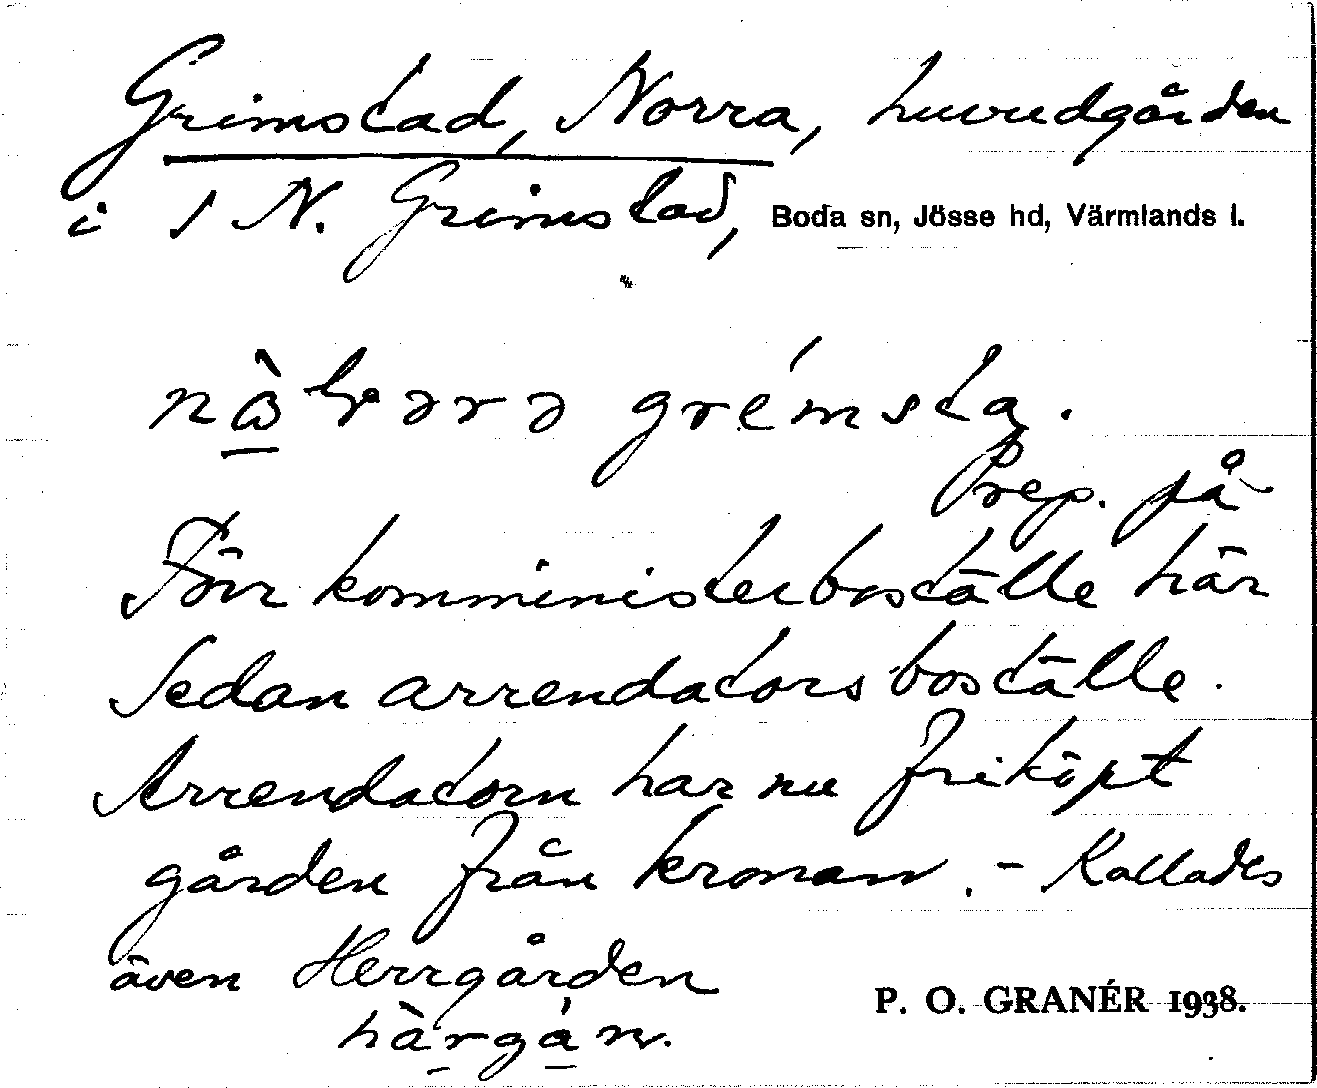 Grimstad, Norra, huvudgården
i 1 N. Grimstad, Boda sn, Jösse hd, Värmlands l.
grémsta.
Prep. på
Förr komministerboställe här
Sedan arrendatorsboställe.
Arrendatorn har nu friköpt
gården från kronan. - Kallades
även Herrgården
hàrgán.
P. O. GRANÉR 1938.